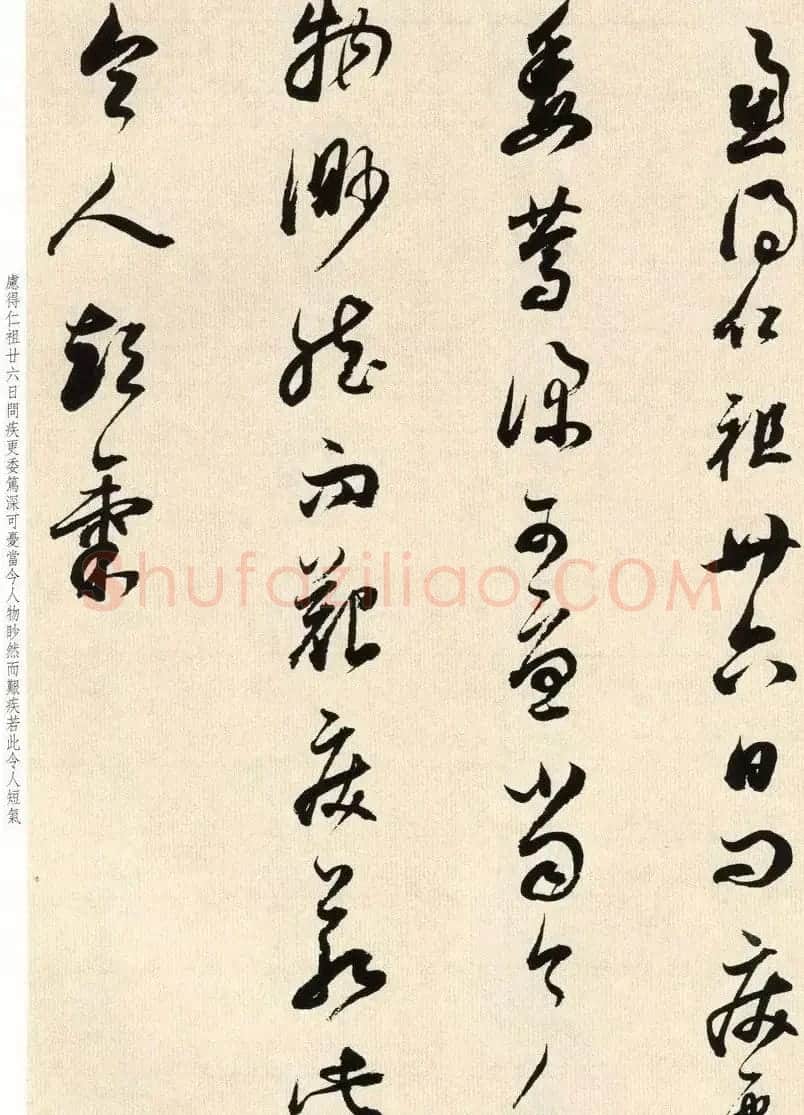 慮得仁祖廿六日問疾更
委篤深可憂當今人
物眇然而艱疾若此
令人短氣
慮得仁祖廿六日問疾更委篤深可憂當今人物眇然而艱疾若此令人短氣
Shufaziliao.COM